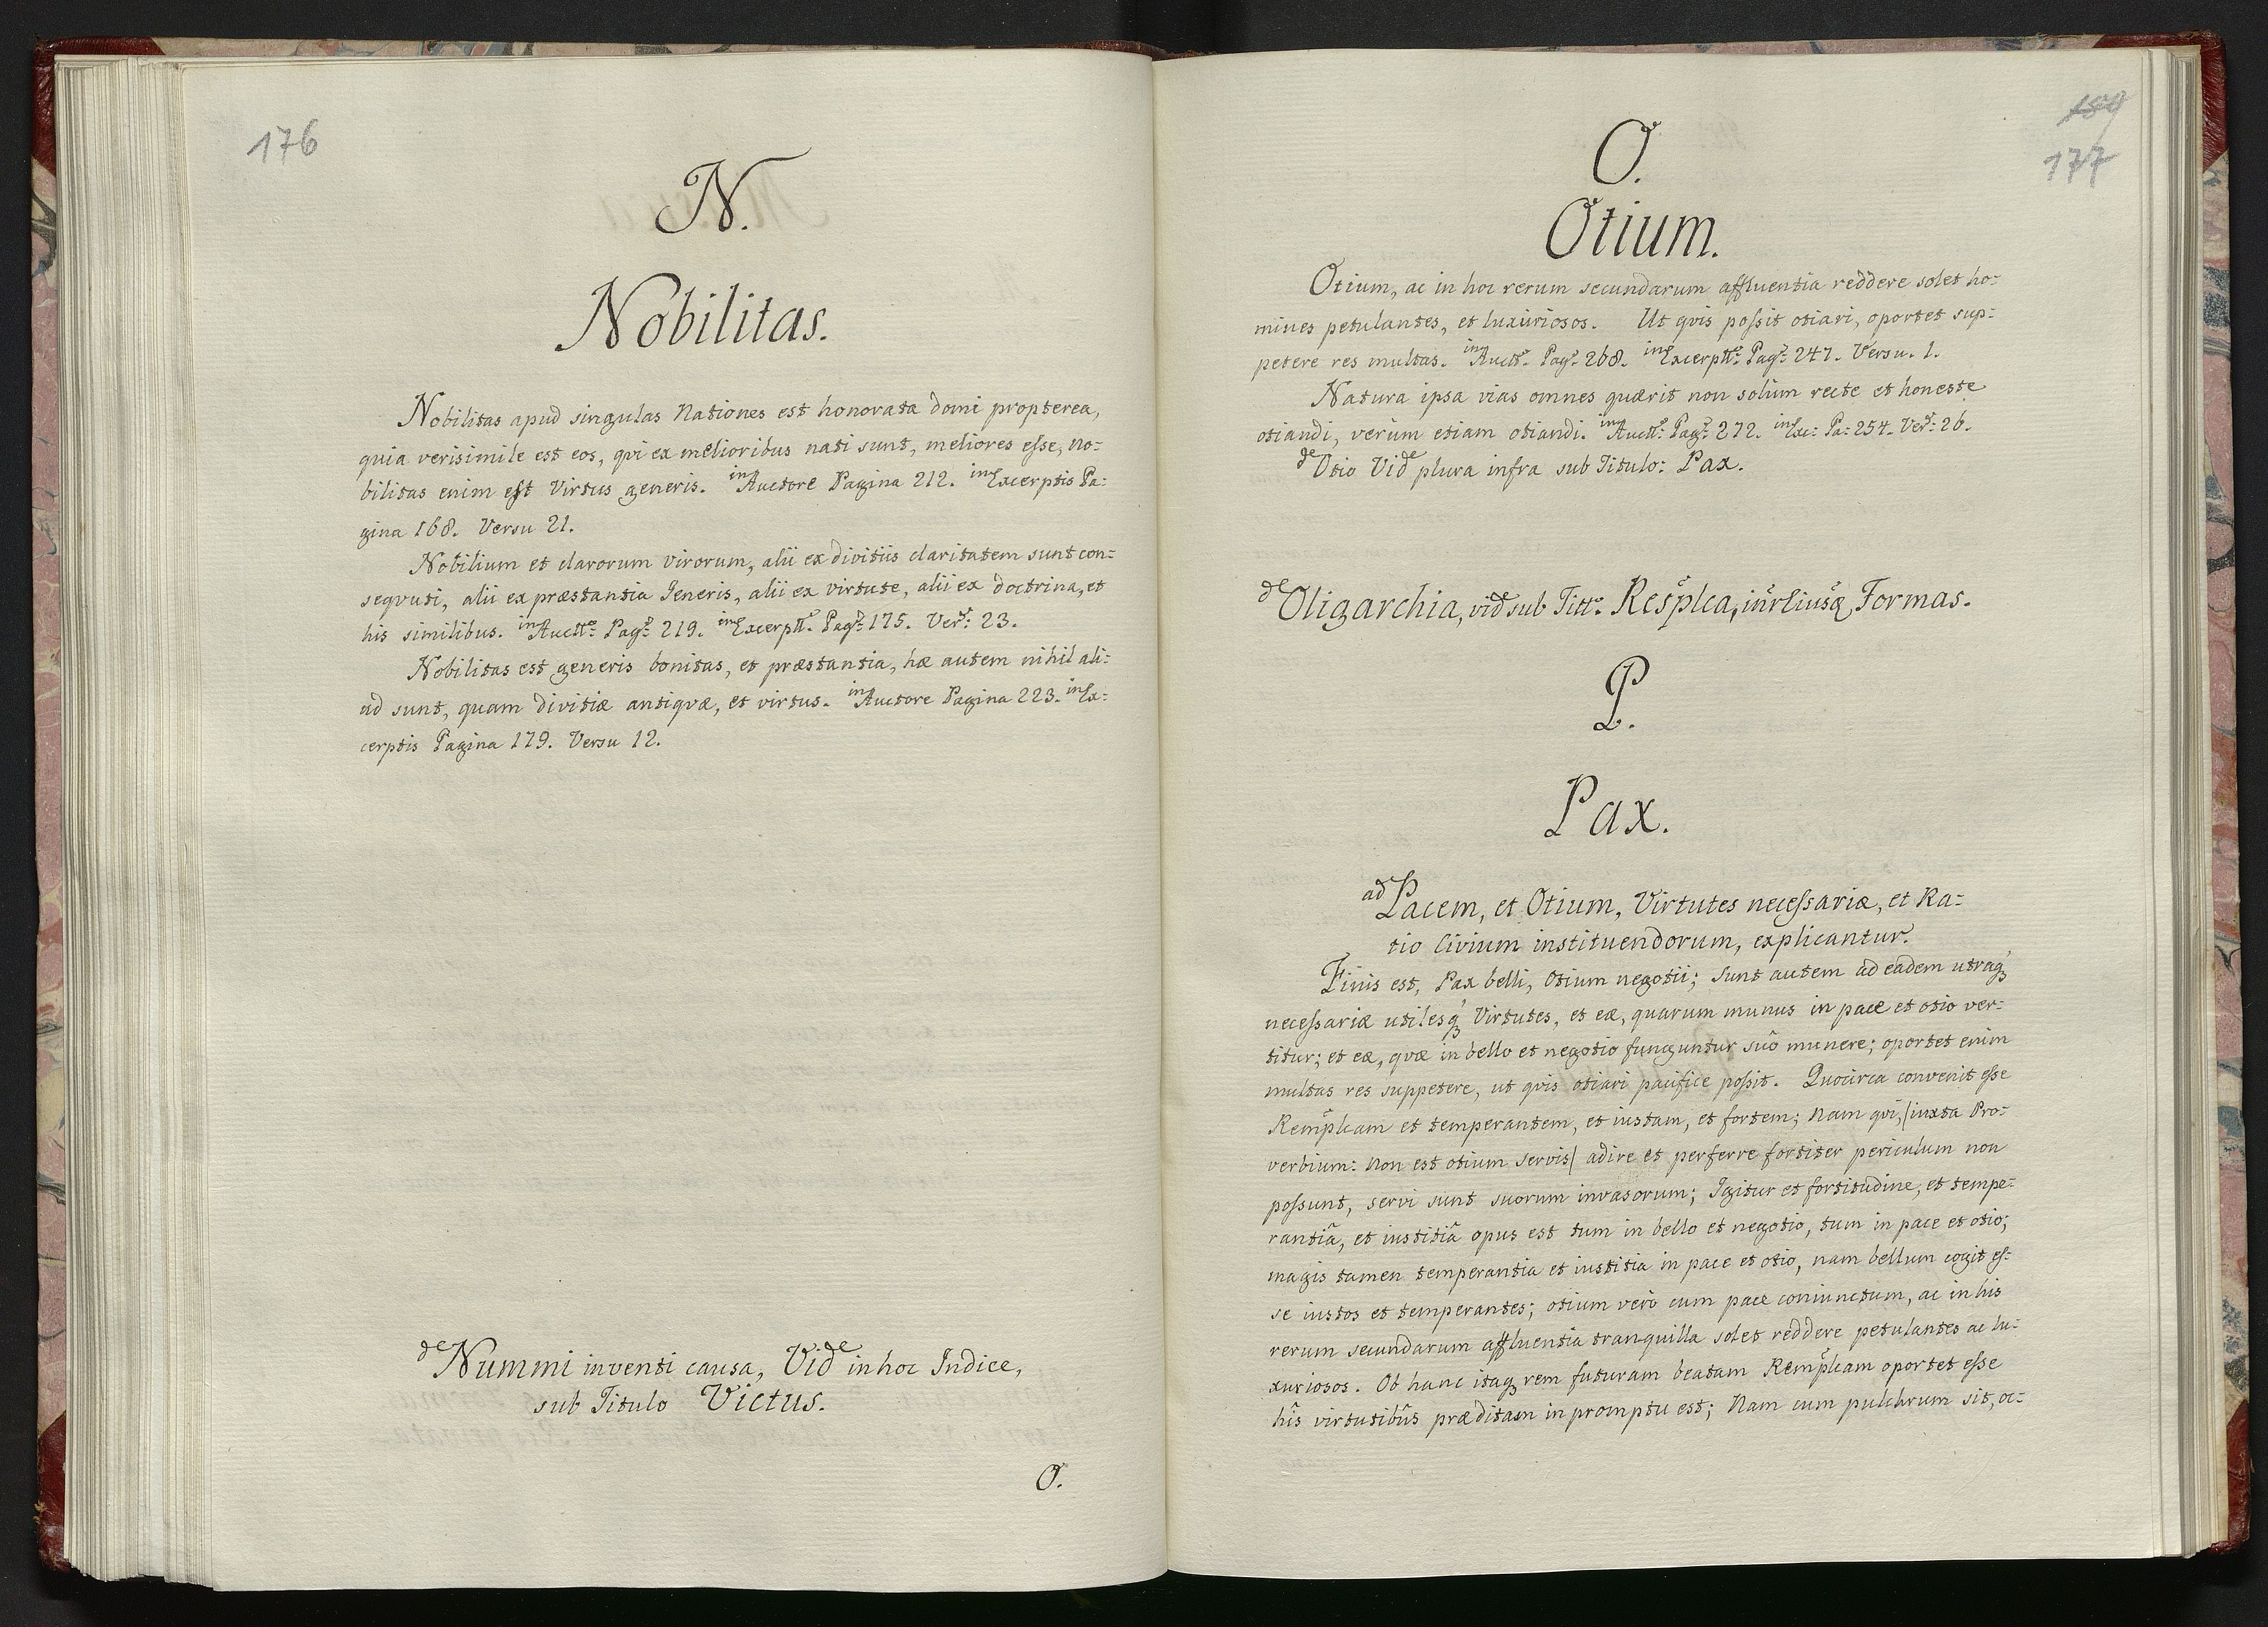 176
N.
Nobilitas.
Nobilitas apud singulas Nationes est honorata domi propterea,
quia verisimile est eos, qvi ex melioribus nati sunt, meliores eſse, no=
bilitas enim est Virtus generis. in Auctore Pagina 212. in Excerptis Pa=
gina 168. Versu 21.
Nobilium et clarorum virorum, alii ex divitiis claritatem sunt con=
seqvuti, alii ex præstantia Generis, alii ex virtute, alii ex doctrina, et
his similibus. in Auctt: Pag: 219. in Excerptt: Pag: 175. Ver: 23.
Nobilitas est generis bonitas, et præstantia, hæ autem nihil ali=
ud sunt, quam divitiæ antiqvæ, et virtus. in Auctore Pagina 223. in Ex=
cerptis Pagina 179. Versu 12.
de Nummi inventi causa, Vide in hoc Indice,
sub Titulo Victus.
O.
177
O.
Otium.
Otium, ac in hoc rerum secundarum affluentia reddere solet ho=
mines petulantes, et luxuriosos. Ut qvis poſsit otiari, oportet sup=
petere res multas. in Auctt: Pag: 268. in Excerptt: Pag: 247. Versu. 1.
Natura ipsa vias omnes quærit non solùm recte et honeste
otiandi, verùm etiam otiandi. in Auctt: Pag: 272. in Ex: Pa: 254. Ver: 26.
de Otio Vide plura infra sub Titulo: Pax.
de Oligarchia, vide sub Titt: Resplca, Formas.
P.
Pax.
ad Pacem, et Otium, Virtutes neceſsariæ, et Ra=
tio Civium instituendorum, explicantur.
Finis est, Pax belli, Otium negotii; Sunt autem ad eadem utraqꝫ
neceſsariæ utilesqꝫ Virtutes, et eæ, quarum munus in pace et otio ver=
titur; et eæ, qvæ in bello et negotio funguntur suô munere; oportet enim
multas res suppetere, ut qvis otiari pacifice poſsit. Quocirca convenit eſse
Remplcam et temperantem, et iustam, et fortem; Nam qvi, /iuxta Pro=
verbium: Non est otium servis/ adire et perferre fortiter periculum non
poſsunt, servi sunt suorum invasorum; Igitur et fortitudine, et tempe=
rantiâ, et iustitiâ opus est tum in bello et negotio, tum in pace et otio;
magis tamen temperantia et iustitia in pace et otio, nam bellum cogit eſ=
se iustos et temperantes; otium verò cum pace coniunctum, ac in his
rerum secundarum affluentia tranquilla solet reddere petulantes ac lu=
xuriosos. Ob hanc itaqꝫ rem futuram beatam Remplcam oportet eſse
hîs virtutibûs præditam in promptu est; Nam cum pulchrum sit, oc=